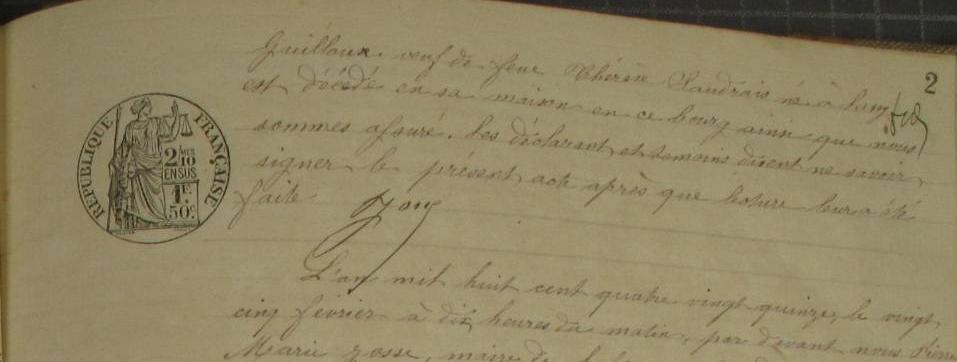 2
Guilloux veuf de feue Thérèse Saudrais né à
est décédé en sa maison en ce bourg ainsi que nous
sommes assuré. Les déclarant et temoins disent ne savoir
signer le présent acte après que lecture leur a été
faite
RÉPUBLIQUE FRANÇAISE
2/10 EN SUS
1F.
50c.
L'an mil huit cent quatre vingt quinze, le vingt
cinq février à dix heures du matin, par devant nous Pierre
Marie Josse, maire de